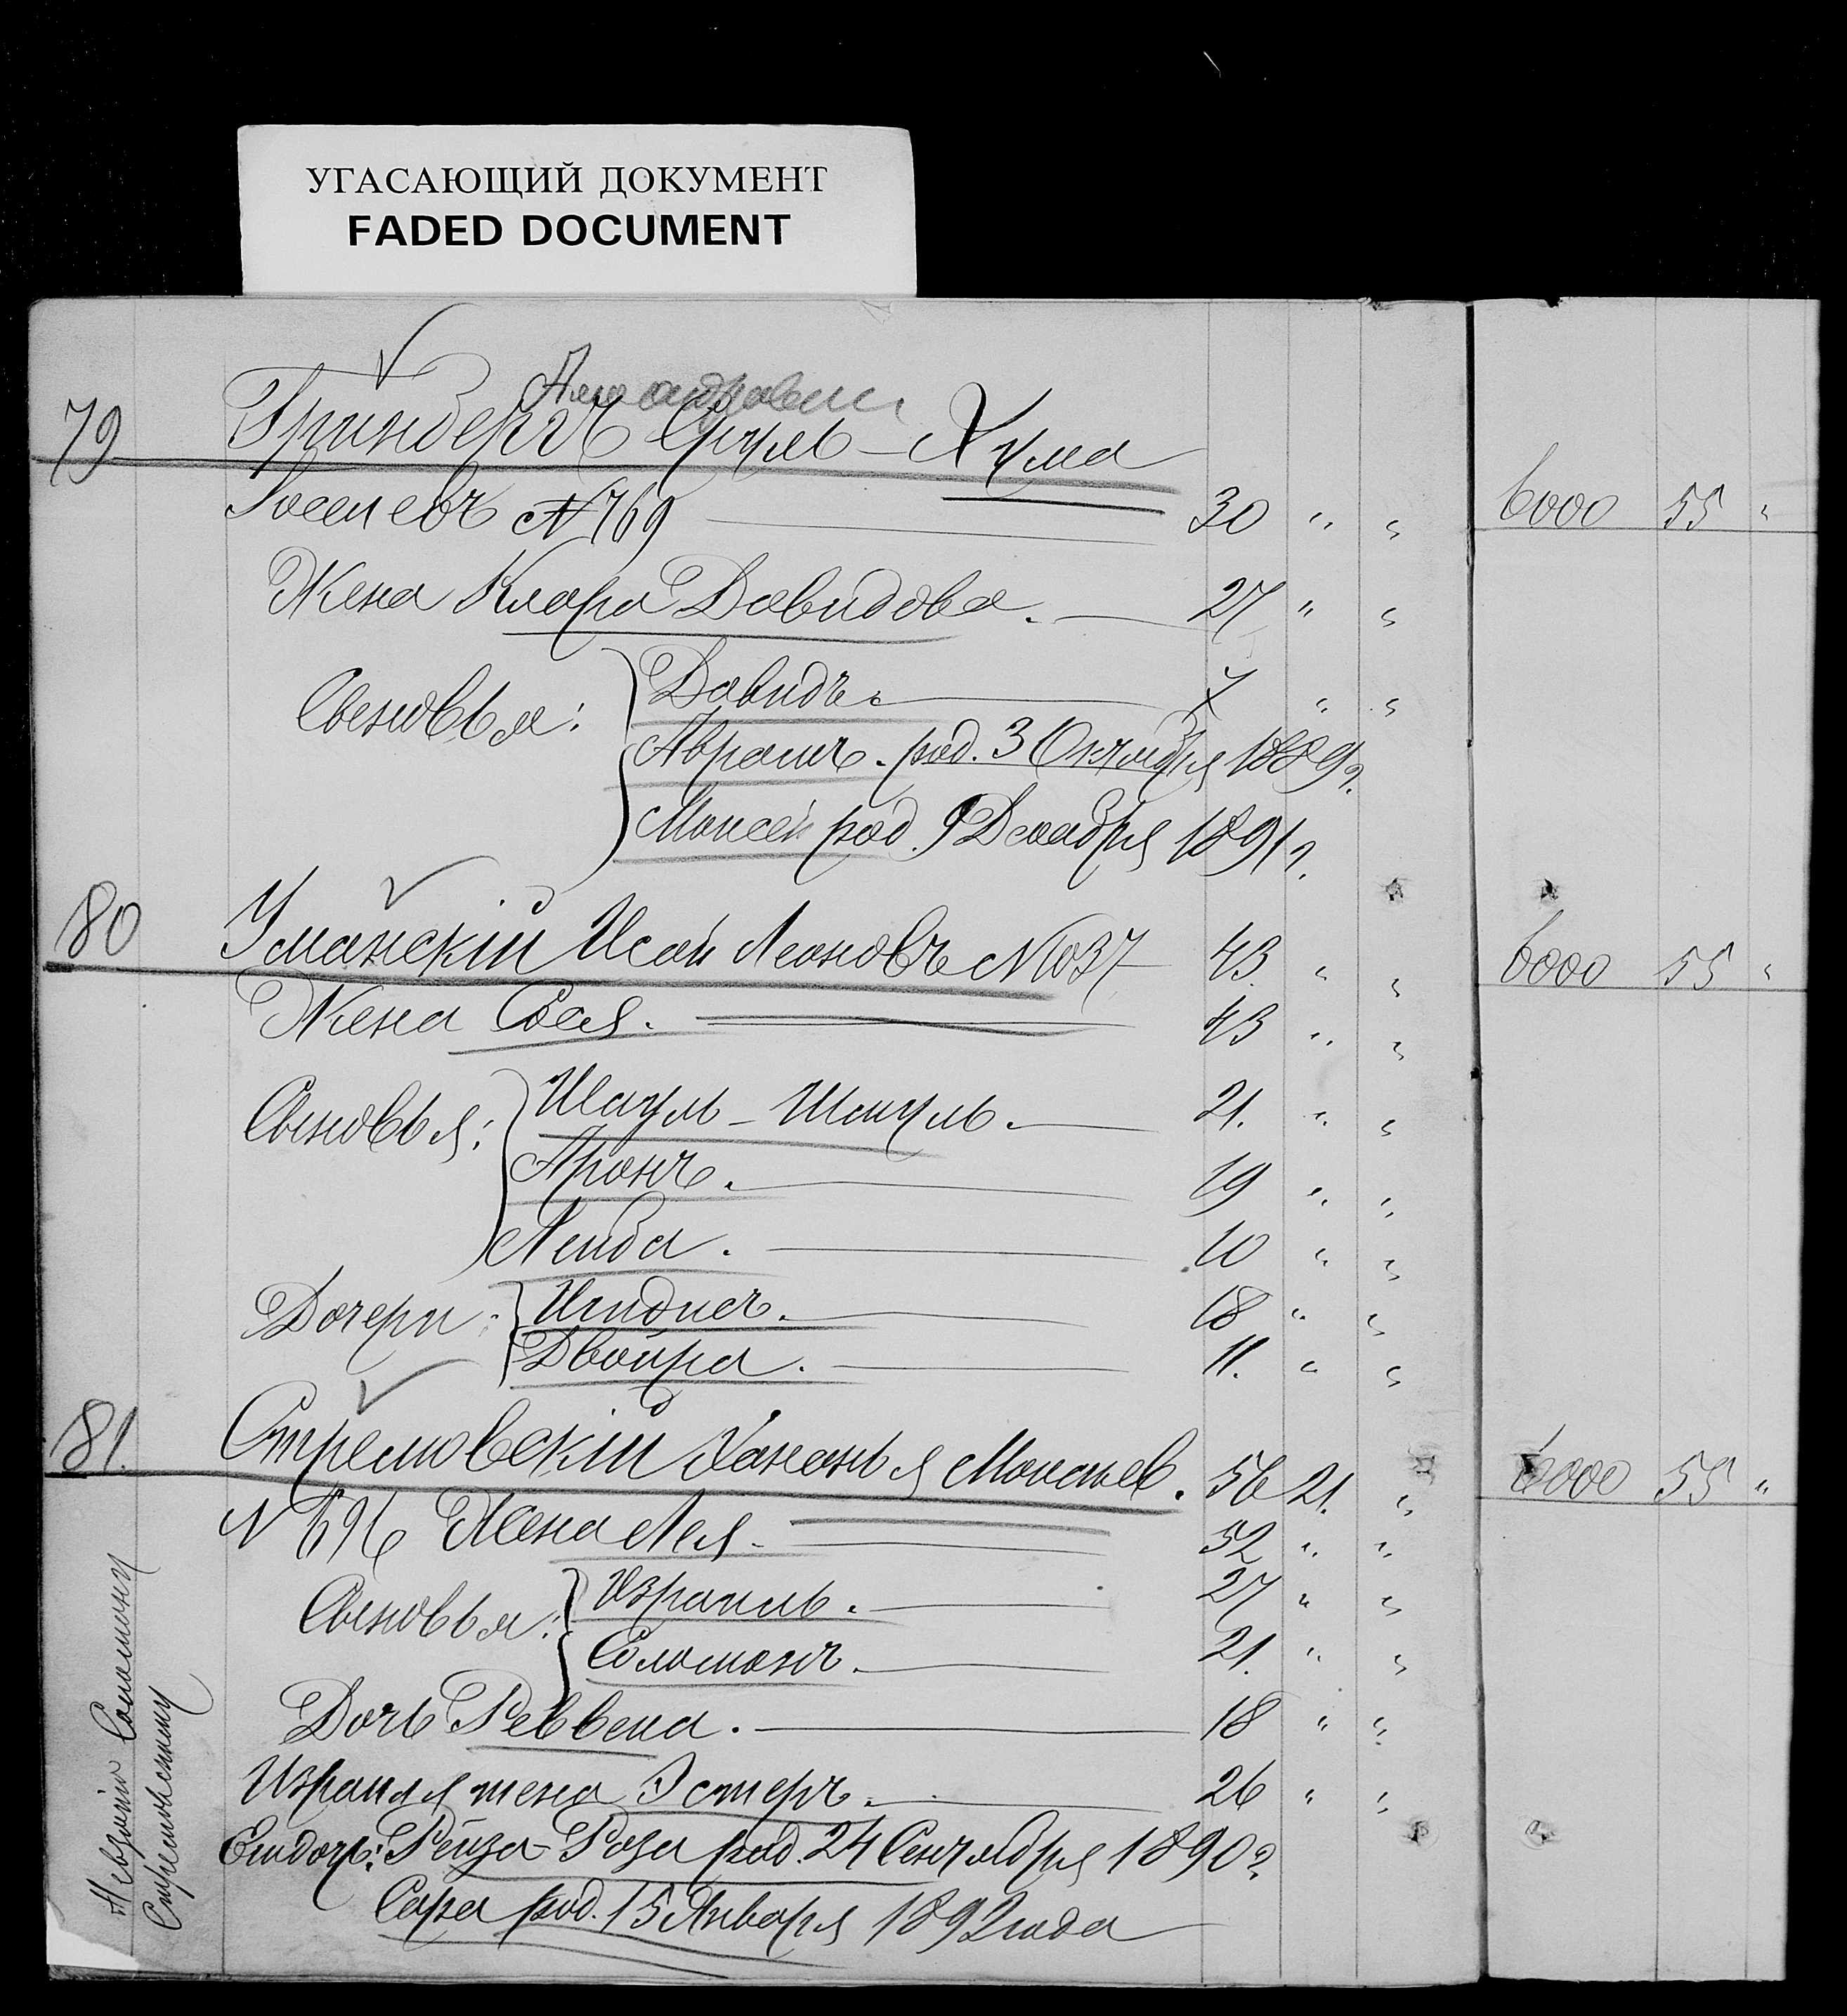 УГАСАЮЩИЙ ДОКУМЕНТ
FADED DOCUMENT
79 Гринбергъ Сруль-Хума
Іоселевъ № 769 30 " " 6000 55 "
Жена Клара Давидова. 27 " "
Сыновья: Давидъ. 7 " "
Абрамъ. род. 3 Октября 1889 г.
Моисей род. 9 Декабря 1891 г.
80 Уманскій Исай Леоновъ № 1037 43 " " 6000 55 "
Жена Сося. 43 " "
Сыновья: Шмуль. 21. " "
Аронъ. 19 " "
Лейба. 10 " "
Дочери: 18 " "
Двойра. 11. " "
81. Стремовскій Хананья Моисеев. 56 21. " 6000 55 "
№ 696 Жена Лея. 52 " "
Сыновья: Израиль. 27 " "
Соломонъ. 21. " "
Дочь Реввека. 18 " "
Израиля жена Эстеръ. 26 " "
Ею дочь: Рейза-Роза род. 24 Сентября 1890 г.
Сара род. 15 Января 1892 года
Соломону
Стремовскому